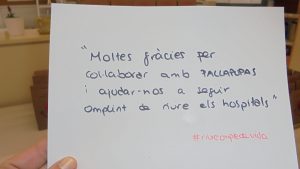 "Moltes gràcies per
col·laborar amb PALLAPUPAS
i ajudar-nos a seguir
omplint de riure els hospitals"